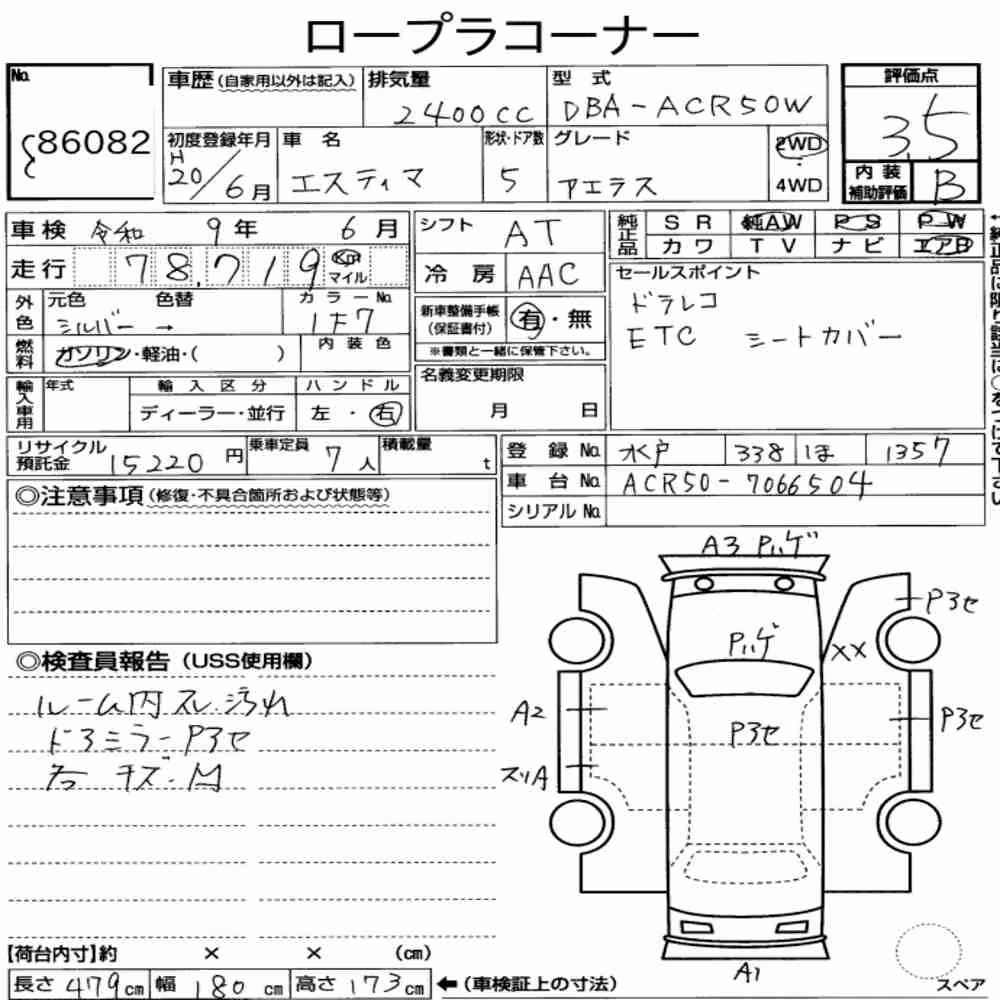 ロープラコーナー
No. 86082
車歴（自家用以外は記入） 排気量 2400CC 型式 DBA-ACR50W 評価点 3.5
初度登録年月 H20/6月 車名 エスティマ 形状・ドア数 5 グレード アエラス 2WD・4WD 内装補助評価 B
車検 令和 9年 6月 シフト AT 純正品 SR 純AW PS PW
カワ TV ナビ エアB
走行 78,719 Km マイル 冷房 AAC
外色 元色 シルバー 色替 → カラーNo. 1F7
燃料 ガソリン・軽油・（ ） 内装色
新車整備手帳（保証書付） 有・無
※書類と一緒に保管下さい。
セールスポイント
ドラレコ
ETC シートカバー
輸入車用 年式 輸入区分 ディーラー・並行 ハンドル 左・右
名義変更期限 月 日
リサイクル預託金 15220円 乗車定員 7人 積載量 t
登録No. 水戸 338 ほ 1357
車台No. ACR50-7066504
シリアルNo.
◎注意事項（修復・不具合箇所および状態等）
◎検査員報告（USS使用欄）
ルーム内スレ.汚れ
ドアミラーP3セ
右 キズ.凹
A3 Pハゲ
P3セ
Pハゲ
XX
A2
P3セ
P3セ
スリA
A1
スペア
【荷台内寸】約 × × （cm）
長さ 479cm 幅 180cm 高さ 173cm ←（車検証上の寸法）